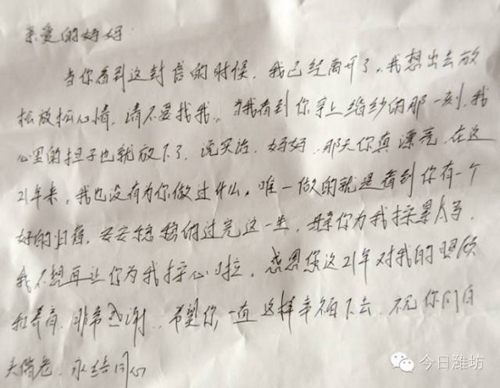 亲爱的妈妈
当你看到这封信的时候,我已经离开了,我想出去放
松放松心情,请不要找我。当我看到你穿上婚纱的那一刻,我
心里的担子也就放下了。说实话,妈妈,那天你真漂亮,在这
21年来,我也没有为你做过什么,唯一做的就是看到你有一个
好的归宿,安安稳稳的过完这一生,你为我操累
我不想再让你为我操心啦,感恩您这21年对我的照顾
和养育,非常感谢,希望你一直这样幸福下去,祝你们白
头偕老,永结同心
今日潍坊